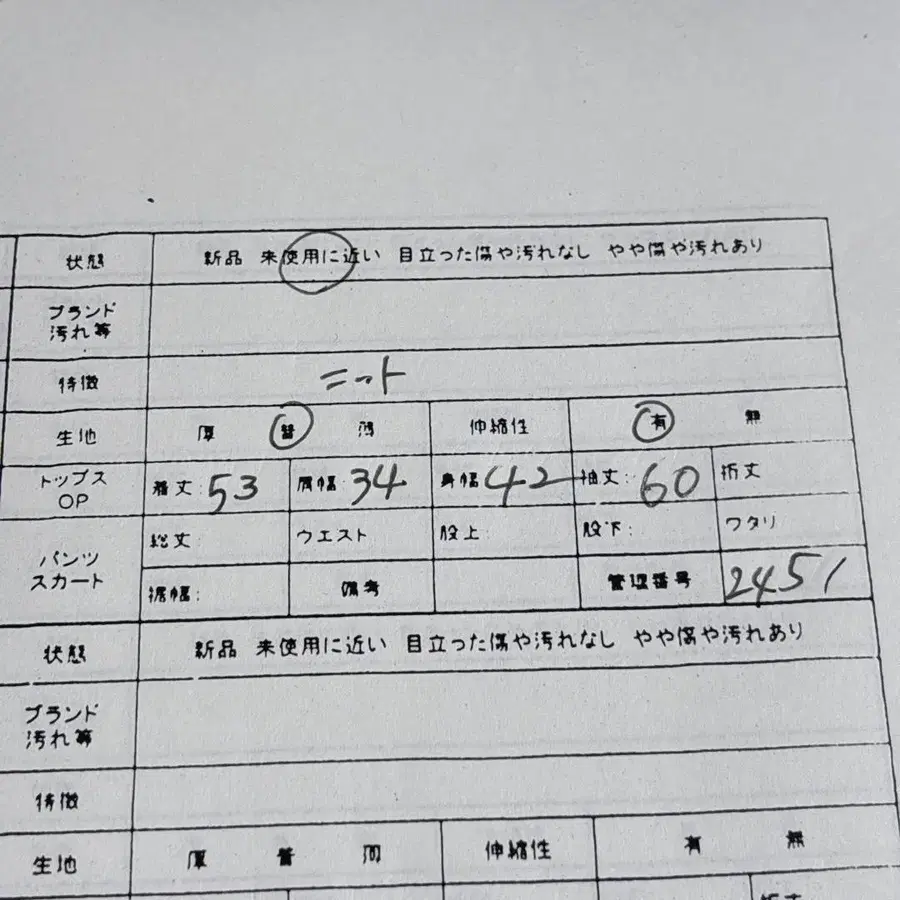 状態 新品 未使用に近い 目立った傷や汚れなし やや傷や汚れあり
ブランド
汚れ等
特徴 ニット
生地 厚 普 薄 伸縮性 有 無
トップス
OP
着丈: 53 肩幅: 34 身幅: 42 袖丈: 60 裄丈
パンツ
スカート
総丈: ウエスト 股上: 股下: ワタリ
裾幅: 備考 管理番号 2451
状態 新品 未使用に近い 目立った傷や汚れなし やや傷や汚れあり
ブランド
汚れ等
特徴
生地 厚 普 伸縮性 有 無